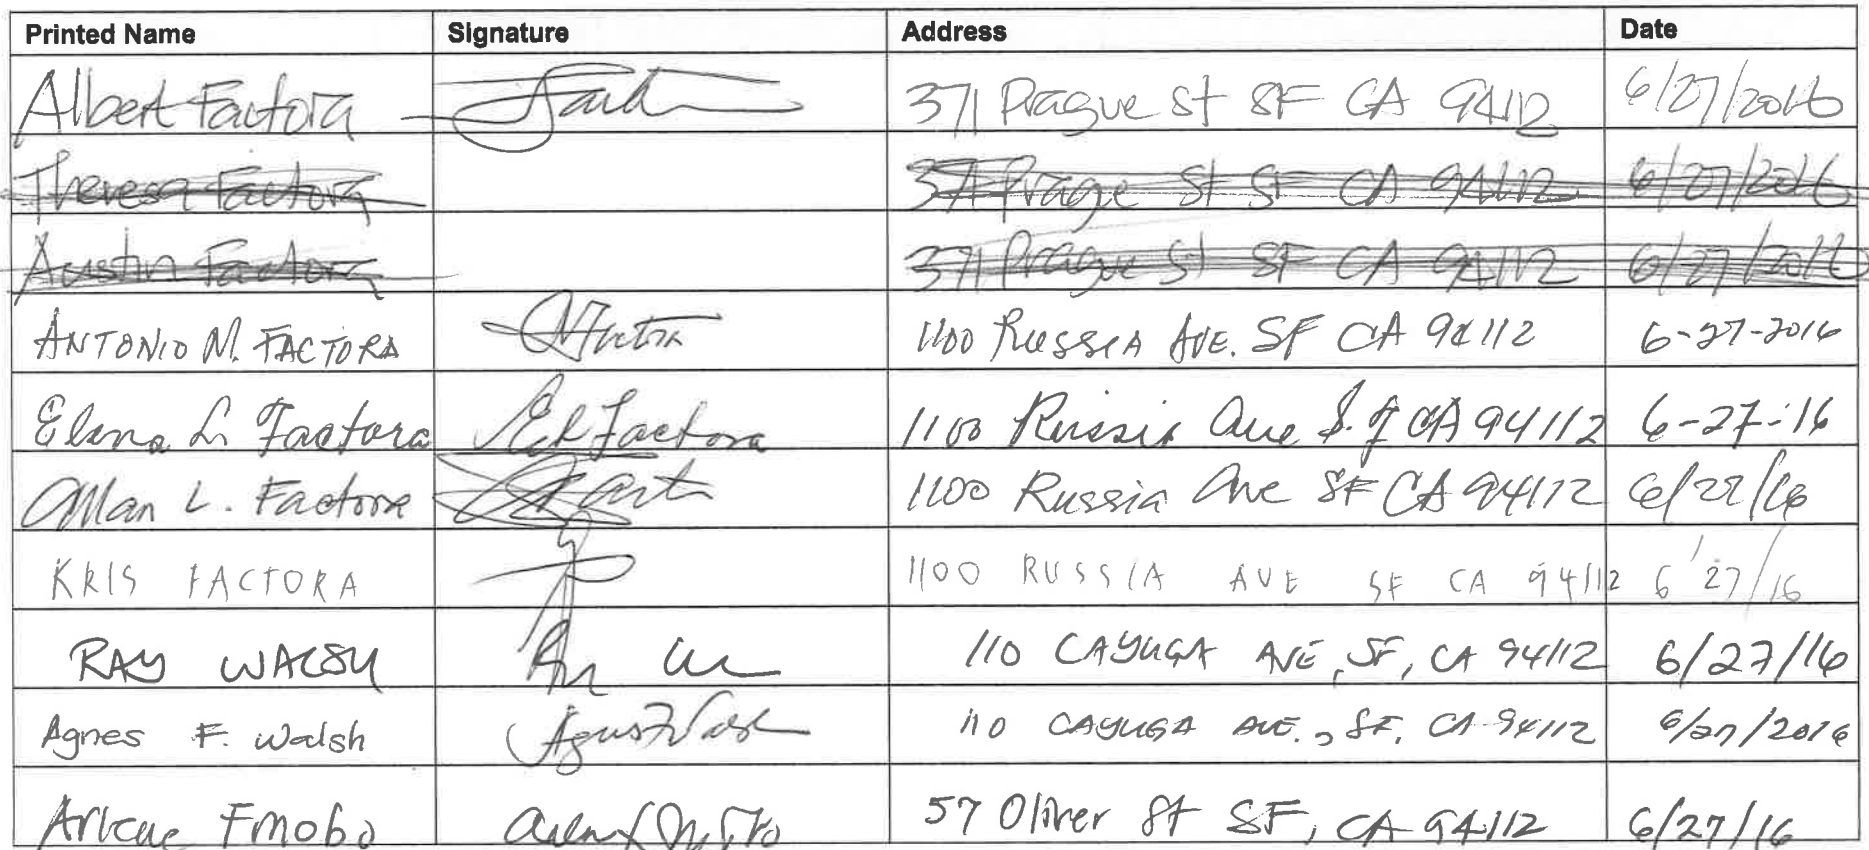 Printed Name Signature Address Date
Albert Factora 371 Prague St SF CA 94112 6/27/2016
Theresa Factora 371 Prague St SF CA 94112 6/27/2016
Austin Factora 371 Prague St SF CA 94112 6/27/2016
ANTONIO M. FACTORA 1100 RUSSIA AVE. SF CA 94112 6-27-2016
Elena L. Factora EL Factora 1100 Russia Ave S.F CA 94112 6-27-16
Allan L. Factora 1100 Russia Ave SF CA 94112 6/27/16
KRIS FACTORA 1100 RUSSIA AVE SF CA 94112 6/27/16
RAY WALSH 110 CAYUGA AVE, SF, CA 94112 6/27/16
Agnes F. Walsh Agnes Walsh 110 CAYUGA AVE., SF, CA 94112 6/27/2016
57 Oliver St SF, CA 94112 6/27/16